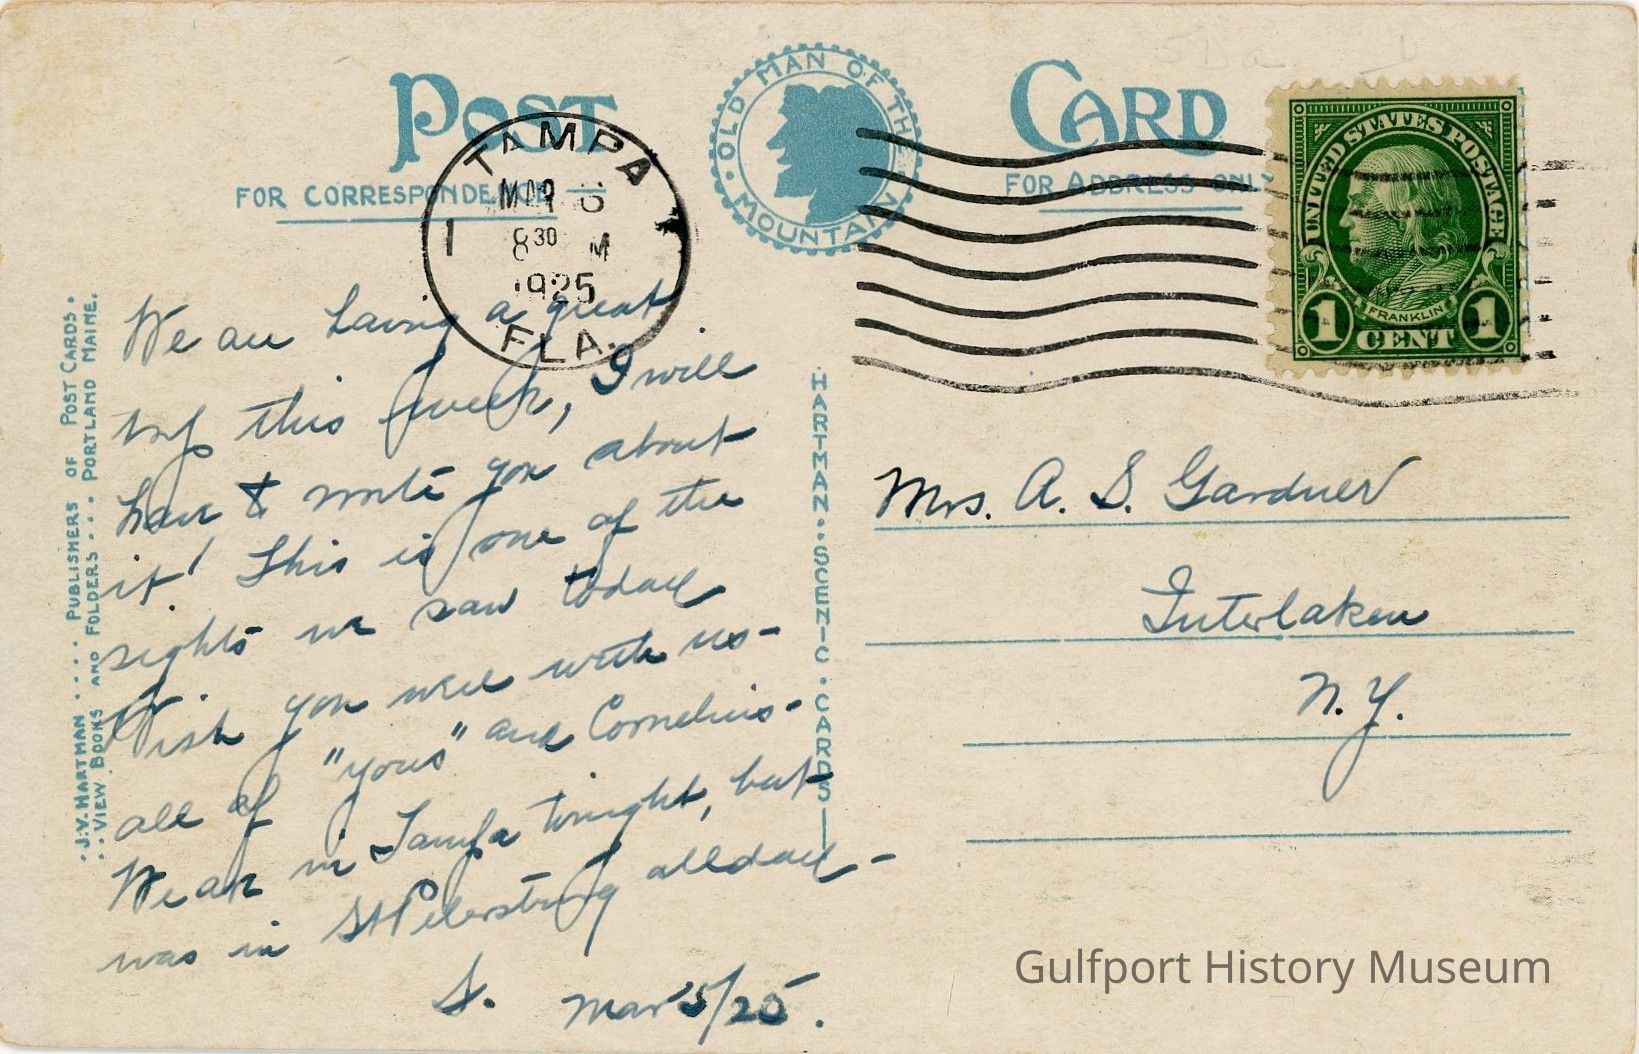 POST CARD
OLD MAN OF THE MOUNTAIN
FOR CORRESPONDENCE
FOR ADDRESS ONLY
TAMPA
MAR 6
1
8 30 M
1925
FLA.
UNITED STATES POSTAGE
FRANKLIN
1 CENT 1
·J.V. HARTMAN ···· PUBLISHERS OF POST CARDS·
··VIEW BOOKS AND FOLDERS··· PORTLAND MAINE.
We are having a great
trip this week, I will
have to write you about
it! This is one of the
sights we saw today
Wish you were with us-
all of "yous" and Cornelius-
We are in Tampa tonight, but
was in St Petersburg all day-
S. Mar 5/25.
HARTMAN·SCENIC·CARDS
Mrs. A. S. Gardner
Interlaken
N. Y.
Gulfport History Museum